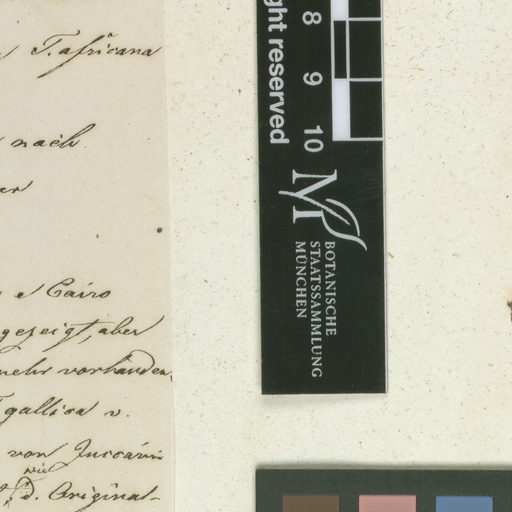 T. africana
nach
e Cairo
gezeigt, aber
mehr vorhanden,
gallica v.
von Zuccarini
wie
D. Original-
ght reserved
8
9
10
BOTANISCHE
STAATSSAMMLUNG
MÜNCHEN